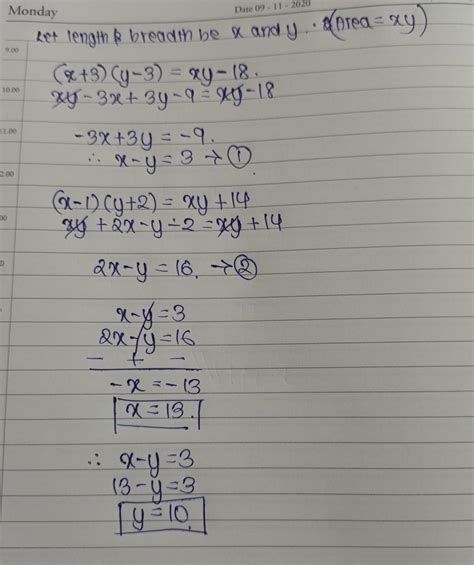 Monday Date 09 - 11 - 2020
Let length & breadth be x and y . (Area = xy)
9.00
(x+3)(y-3) = xy-18.
10.00
xy-3x+3y-9=xy-18
11.00
-3x+3y=-9.
∴ x-y=3 → ①
2.00
(x-1)(y+2) = xy+14
00
xy+2x-y-2=xy+14
2x-y=16. → ②
x-y=3
2x-y=16
- + -
-x=-13
x=13.
∴ x-y=3
13-y=3
y=10.